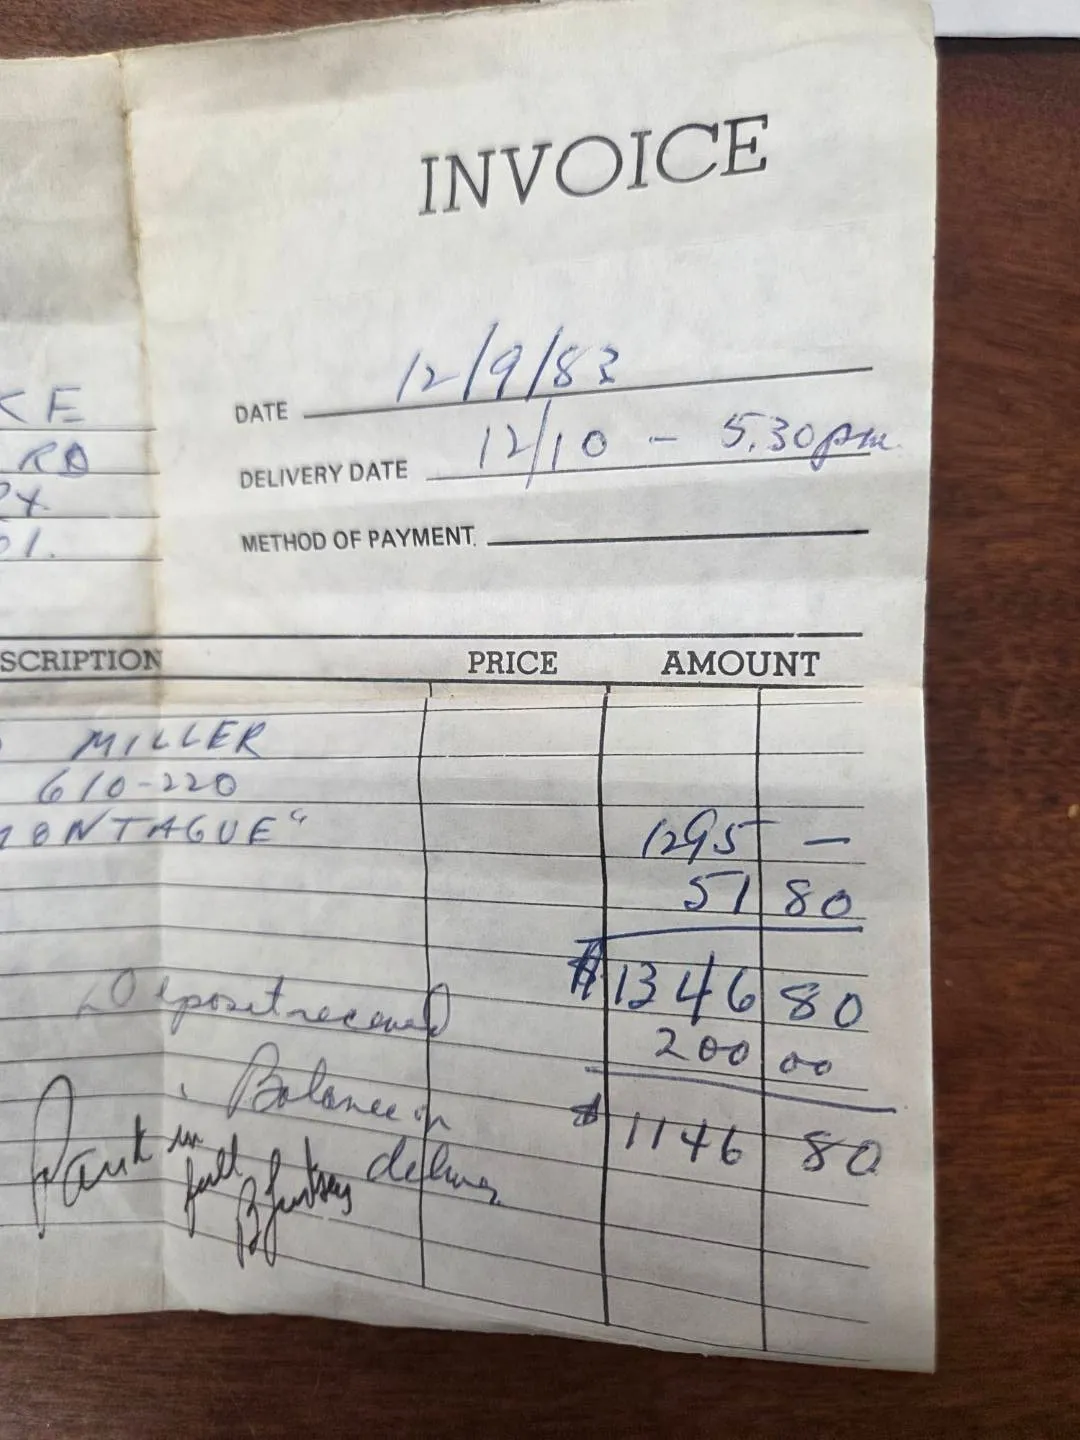 INVOICE
DATE 12/9/83
KE
RD
DELIVERY DATE 12/10 - 5.30pm
01.
METHOD OF PAYMENT.
SCRIPTION PRICE AMOUNT
MILLER
610-220
MONTAGUE" 1295 —
51 80
$1346 80
Deposit received 200 00
Balance on
$1146 80
delivery
in
full